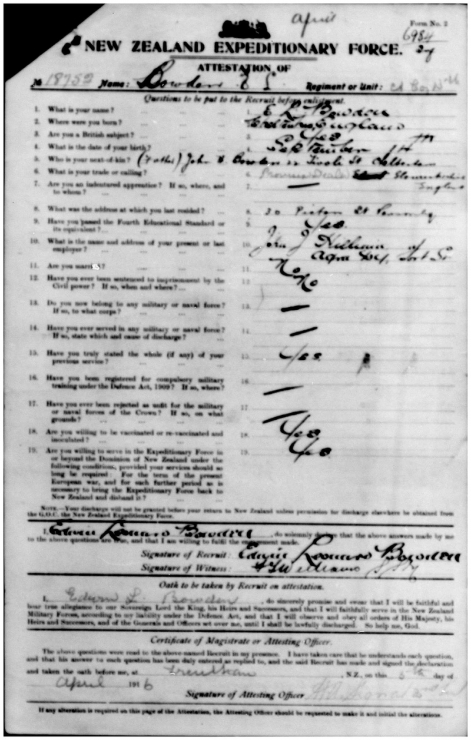 April
Form No. 2
6984
NEW ZEALAND EXPEDITIONARY FORCE.
ATTESTATION OF
No Name: Bowden E L Regiment or Unit:
Questions to be put to the Recruit before enlistment.
1. What is your name? 1. E L Bowden
2. Where were you born? England
3. Are you a British subject? 3. Yes
4. What is the date of your birth? September
5. Who is your next-of-kin? (Father) John Bowden St Cheltenham
6. What is your trade or calling? 6. Gloucestershire
England
7. Are you an indentured apprentice? If so, where, and 7. —
to whom?
8. What was the address at which you last resided? 8. 30 Picton St
9. Have you passed the Fourth Educational Standard or 9. Yes
its equivalent?
10. What is the name and address of your present or last 10. John J of
employer?
11. Are you married? 11. No
12. Have you ever been sentenced to imprisonment by the 12. No
Civil power? If so, when and where?
13. Do you now belong to any military or naval force? 13. —
If so, to what corps?
14. Have you ever served in any military or naval force? 14. —
If so, state which and cause of discharge?
15. Have you truly stated the whole (if any) of your 15. Yes
previous service?
16. Have you been registered for compulsory military 16. —
training under the Defence Act, 1909? If so, where?
17. Have you ever been rejected as unfit for the military 17. —
or naval forces of the Crown? If so, on what
grounds?
18. Are you willing to be vaccinated or re-vaccinated and 18. Yes
inoculated?
19. Are you willing to serve in the Expeditionary Force in 19. Yes
or beyond the Dominion of New Zealand under the
following conditions, provided your services should so
long be required. For the term of the present
European war, and for such further period as is
necessary to bring the Expeditionary Force back to
New Zealand and disband it?
NOTE.—Your discharge will not be granted before your return to New Zealand unless permission for discharge elsewhere be obtained from
the G.O.C. the New Zealand Expeditionary Force.
Edwin Leonard Bowden, do solemnly declare that the above answers made by me
to the above questions are true, and that I am willing to fulfil the engagement made.
Signature of Recruit: Edwin Leonard Bowden
Signature of Witness: Williams
Oath to be taken by Recruit on attestation.
I, Edwin L. Bowden, do sincerely promise and swear that I will be faithful and
bear true allegiance to our Sovereign Lord the King, his Heirs and Successors, and that I will faithfully serve in the New Zealand
Military Forces, according to my liability under the Defence Act, and that I will observe and obey all orders of His Majesty, his
Heirs and Successors, and of the Generals and Officers set over me, until I shall be lawfully discharged. So help me, God.
Certificate of Magistrate or Attesting Officer.
The above questions were read to the above named Recruit in my presence. I have taken care that he understands each question,
and that his answer to each question has been duly entered as replied to, and the said Recruit has made and signed the declaration
and taken the oath before me, at Trentham, N.Z., on this 5th day of
April 1916
Signature of Attesting Officer
If any alteration is required on this page of the Attestation, the Attesting Officer should be requested to make it and initial the alterations.